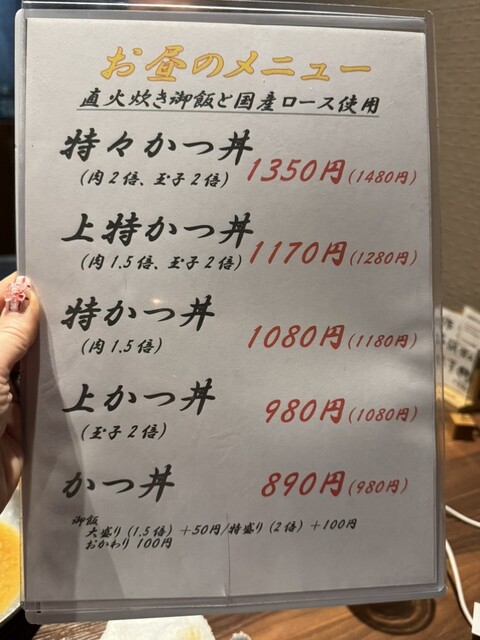 お昼のメニュー
直火炊き御飯と国産ロース使用
特々かつ丼
(肉2倍、玉子2倍) 1350円(1480円)
上特かつ丼
(肉1.5倍、玉子2倍) 1170円(1280円)
特かつ丼
(肉1.5倍) 1080円(1180円)
上かつ丼
(玉子2倍) 980円(1080円)
かつ丼 890円(980円)
御飯
大盛り(1.5倍)+50円/特盛り(2倍)+100円
おかわり 100円